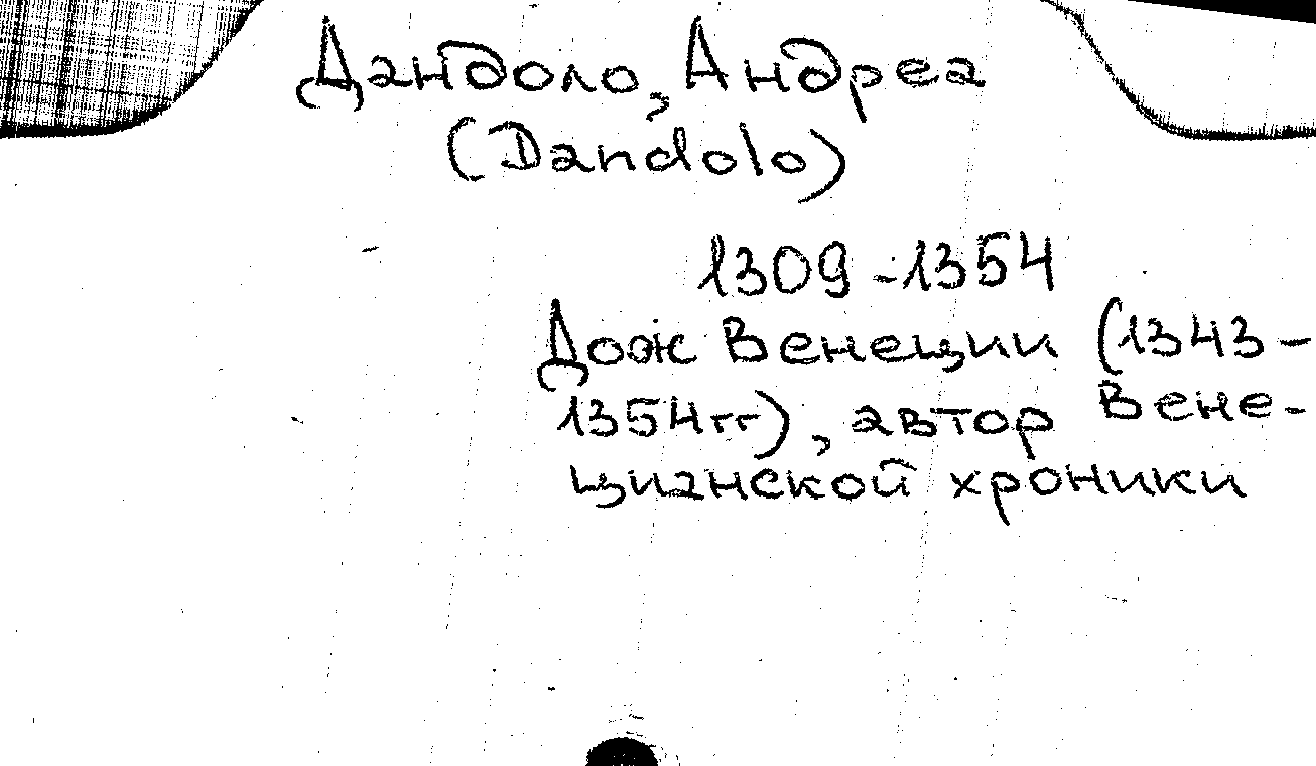 Дандоло, Андреа
(Dandolo)
1309-1354
Дож Венеции (1343-
1354гг), автор Вене-
цианской хроники